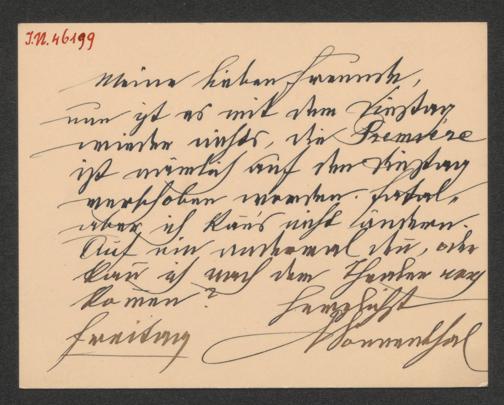 I.N. 46199
Meine lieben Freunde,
nun ist es mit dem Dinstag
wieder nichts, die Première
ist nämlich auf den Dinstag
verschoben worden. Fatal,
aber ich kann's nicht ändern.
Auf ein andermal den, oder
kan ich nach dem Theater noch
komen? Herzlichst
Freitag Sonnenthal